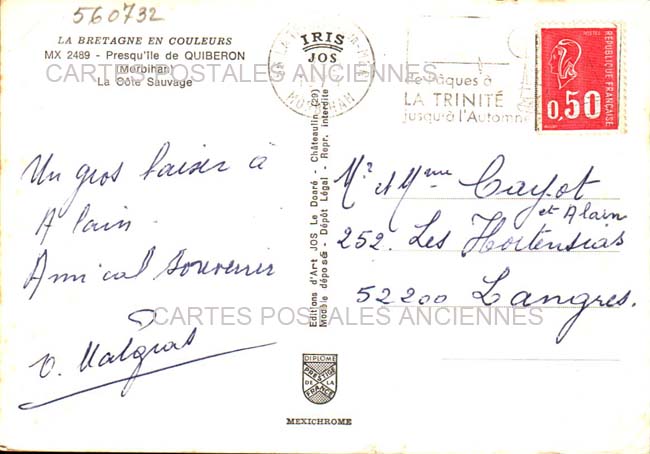 560732
LA BRETAGNE EN COULEURS
MX 2489 - Presqu'Ile de QUIBERON
(Morbihan)
La Côte Sauvage
CARTES POSTALES ANCIENNES
IRIS
JOS
MORBIHAN
de Pâques à
LA TRINITÉ
jusqu'à l'Automne
POSTES
RÉPUBLIQUE FRANÇAISE
0,50
Un gros baiser à
Alain
Amical Souvenir
Malgras
Editions d'Art JOS Le Doaré - Châteaulin (29)
Modèle déposé - Dépôt Légal - Repr. interdite
Mr et Mme Cayot
et Alain
252. Les Hortensias
52200 Langres.
CARTES POSTALES ANCIENNES
DIPLOME
PRESTIGE
DE LA
FRANCE
MEXICHROME